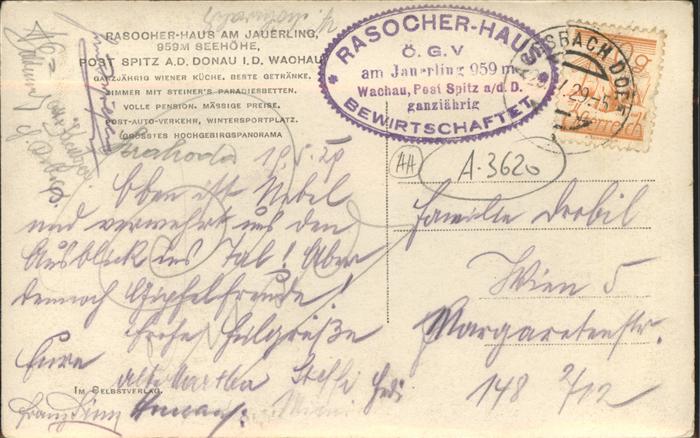 RASOCHER-HAUS AM JAUERLING,
959M SEEHÖHE,
POST SPITZ A.D. DONAU I.D. WACHAU
GANZJÄHRIG WIENER KÜCHE. BESTE GETRÄNKE.
ZIMMER MIT STEINER'S PARADIESBETTEN.
VOLLE PENSION. MÄSSIGE PREISE.
POST-AUTO-VERKEHR, WINTERSPORTPLATZ.
GRÖSSTES HOCHGEBIRGSPANORAMA
RASOCHER-HAUS
Ö.G.V
am Jauerling 959 m
Wachau, Post Spitz a/d. D.
ganzjährig
BEWIRTSCHAFTET
AH
A-3620
Oben ist Nebel
und verwehrt uns den
Ausblick ins Tal! Aber
dennoch Gipfelfreude!
Frohe
Eure
Martha Steffi
IM SELBSTVERLAG.
Franz
Familie Drobil
Wien 5
Margaretenstr.
148 2/12